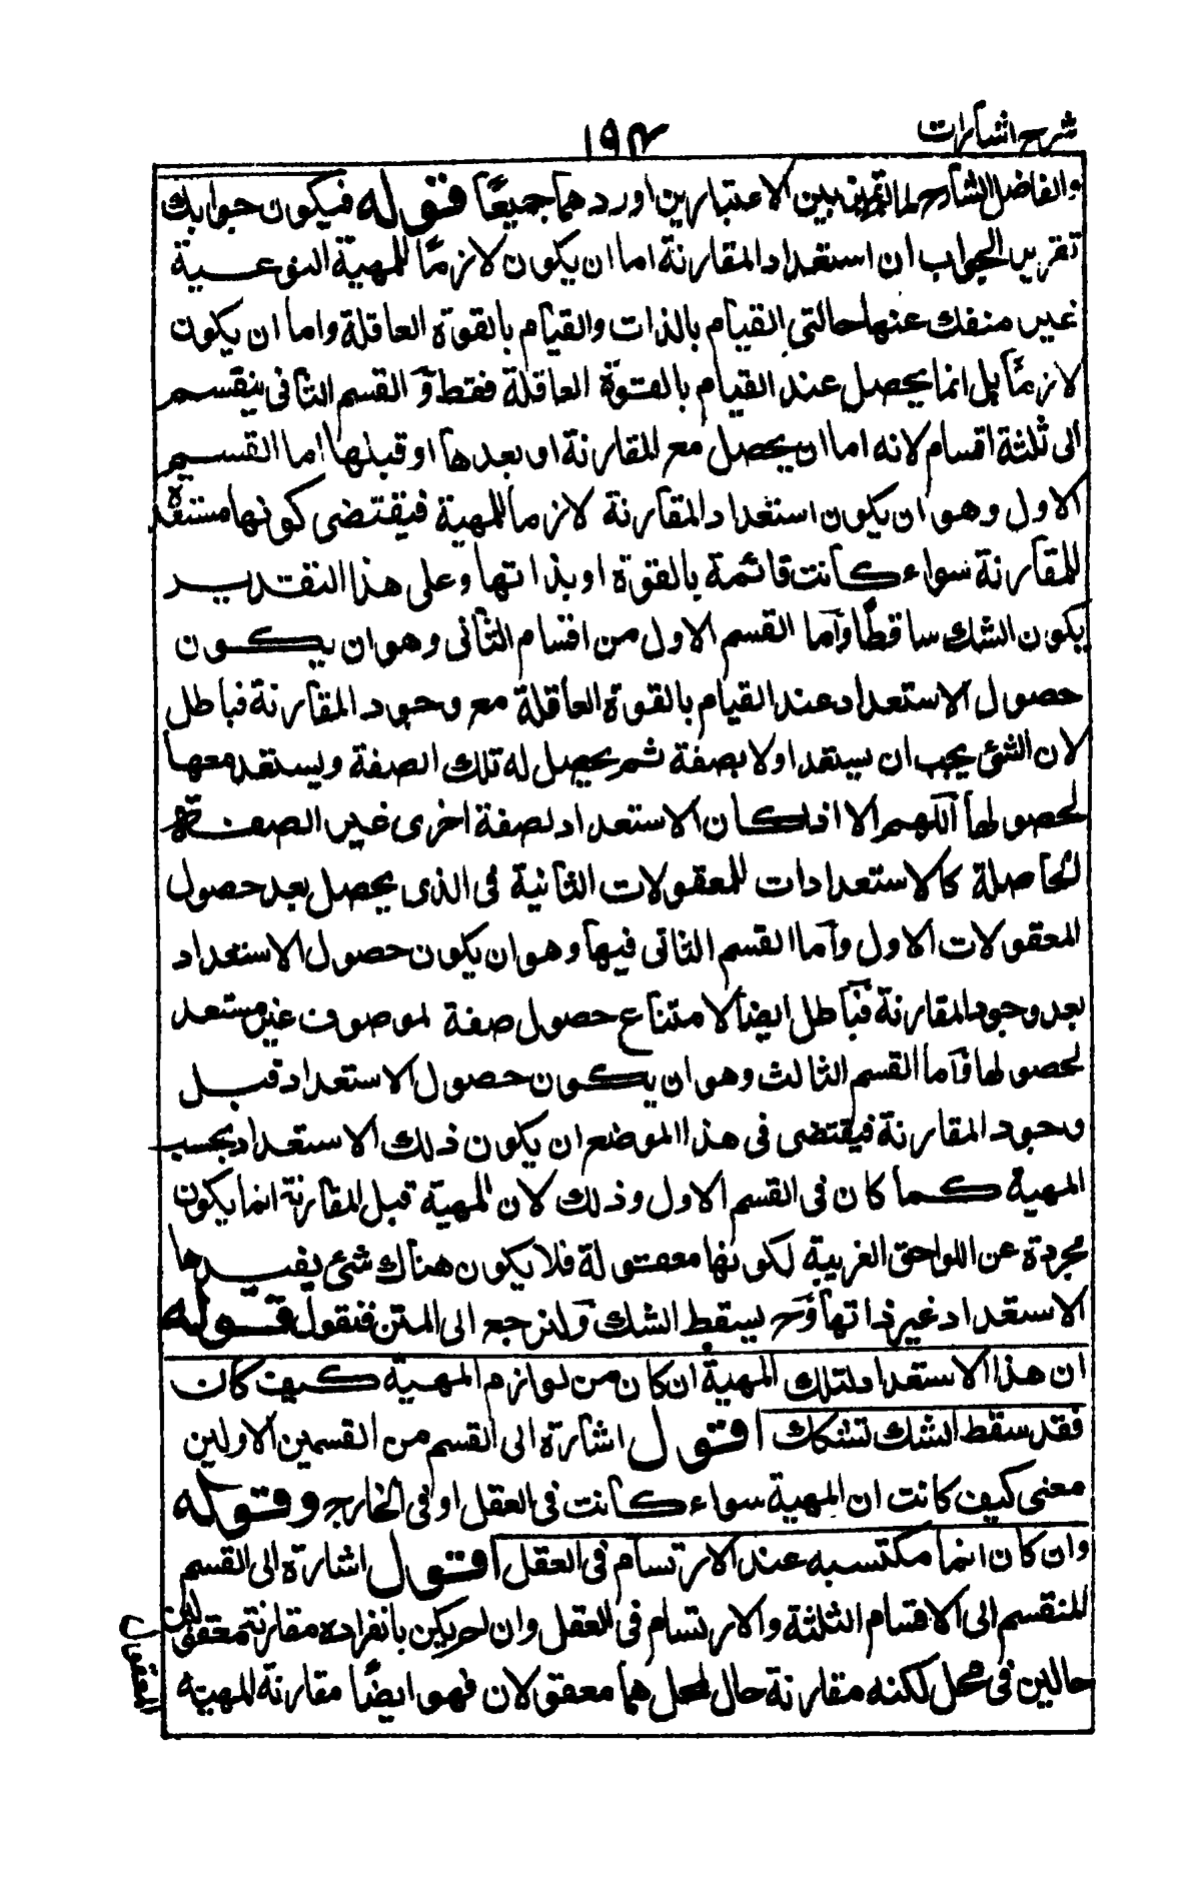 شرح اشارات
١٩٣
والفاضل الشارح لما لم يتميز بين الاعتبارين اوردهما جميعًا قوله فيكون جوابك
تقرير الجواب ان استعداد المقارنة اما ان يكون لازمًا للمهية النوعـيـة
غير منفك عنها حالتي القيام بالذات والقيام بالقوة العاقلة واما ان يكون
لازمًا بل انما يحصل عند القيام بالقوة العاقلة فقط و القسم الثانى ينقسم
الى ثلثة اقسام لانه اما ان يحصل مع المقارنة او بعدها او قبلها اما القسم
الاول وهو ان يكون استعداد المقارنة لازما للمهية فيقتضى كونها مستعدة
للمقارنة سواء كانت قائمة بالقوة او بذاتها وعلى هذا التقدير
يكون الشك ساقطًا وآما القسم الاول من اقسام الثانى وهو ان يكون
حصول الاستعداد عند القيام بالقوة العاقلة مع وجود المقارنة فباطل
لان الشئ يجب ان يستعد اولا بصفة ثم يحصل له تلك الصفة ويستعد معها
لحصولها آللهم الا اذا كان الاستعداد لصفة اخرى غير الصفة
الحاصلة كالاستعدادات للمعقولات الثانية فى الذى يحصل بعد حصول
المعقولات الاول وآما القسم الثانى فيها وهو ان يكون حصول الاستعداد
بعد وجود المقارنة فبآطل ايضا لامتناع حصول صفة لموصوف غير مستعد
لحصولها وآما القسم الثالث وهو ان يكون حصول الاستعداد قبل
وجود المقارنة فيقتضى فى هذا الموضع ان يكون ذلك الاستعداد بحسب
المهية كما كان فى القسم الاول وذلك لان المهية قبل المقارنة انما يكون
مجردة عن اللواحق الغريبة لكونها معقولة فلا يكون هناك شئ يفيدها
الاستعداد غير ذاتها وح يسقط الشك ولنرجع الى المتن فنقول قوله
ان هذا الاستعداد لتلك المهية ان كان من لوازم المهية كيف كانت
فقد سقط الشك تشككك اقول اشارة الى القسم من القسمين الاولين
معنى كيف كانت ان المهية سواء كانت فى العقل او فى الخارج وقوله
وان كان انما مكتسبه عند الارتسام فى العقل اقول اشارة الى القسم
المنقسم الى الاقسام الثلثة والارتسام فى العقل وان لم يكن بانفراده مقارنة معقولين
حالين فى محل لكنه مقارنة حال لمحل هما معقولان فهو ايضًا مقارنة المهية